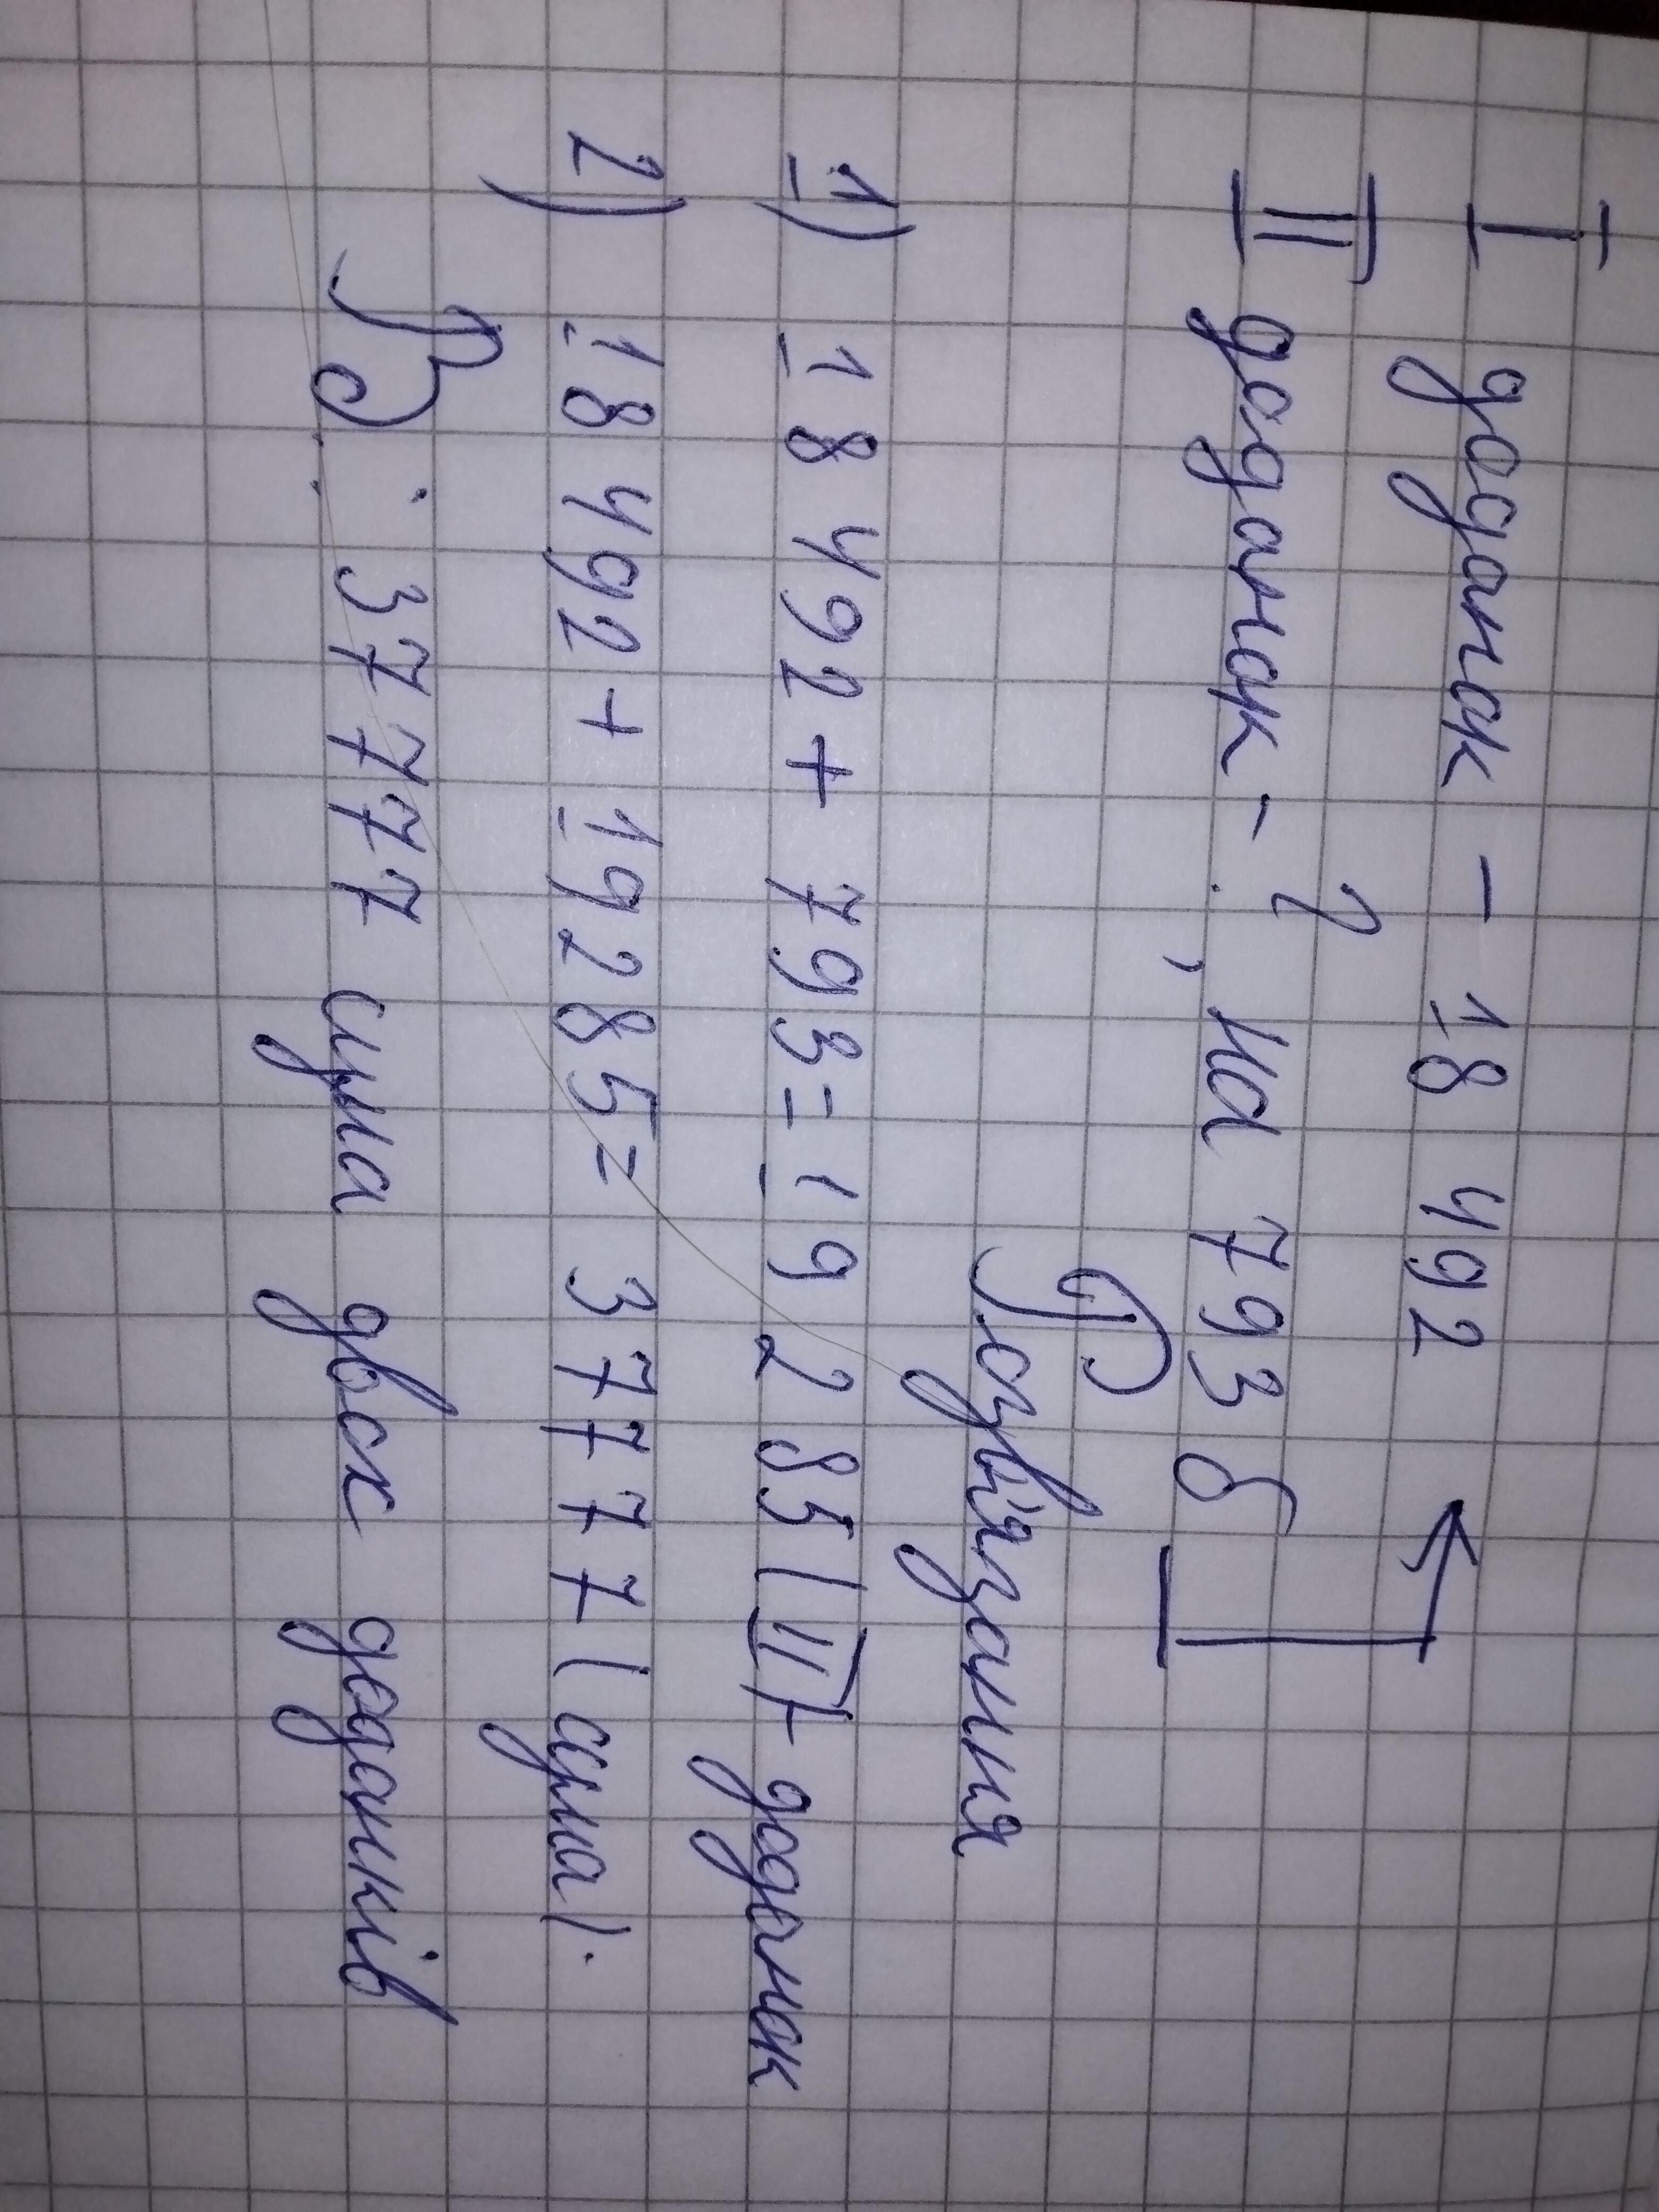 I доданок – 18 492
II доданок - ?, на 793 б
Розв'язання
1) 18 492 + 793 = 19 285 (II) - доданок
2) 18 492 + 19285 = 37777 (сума).
Від.: 37777 сума двох доданків